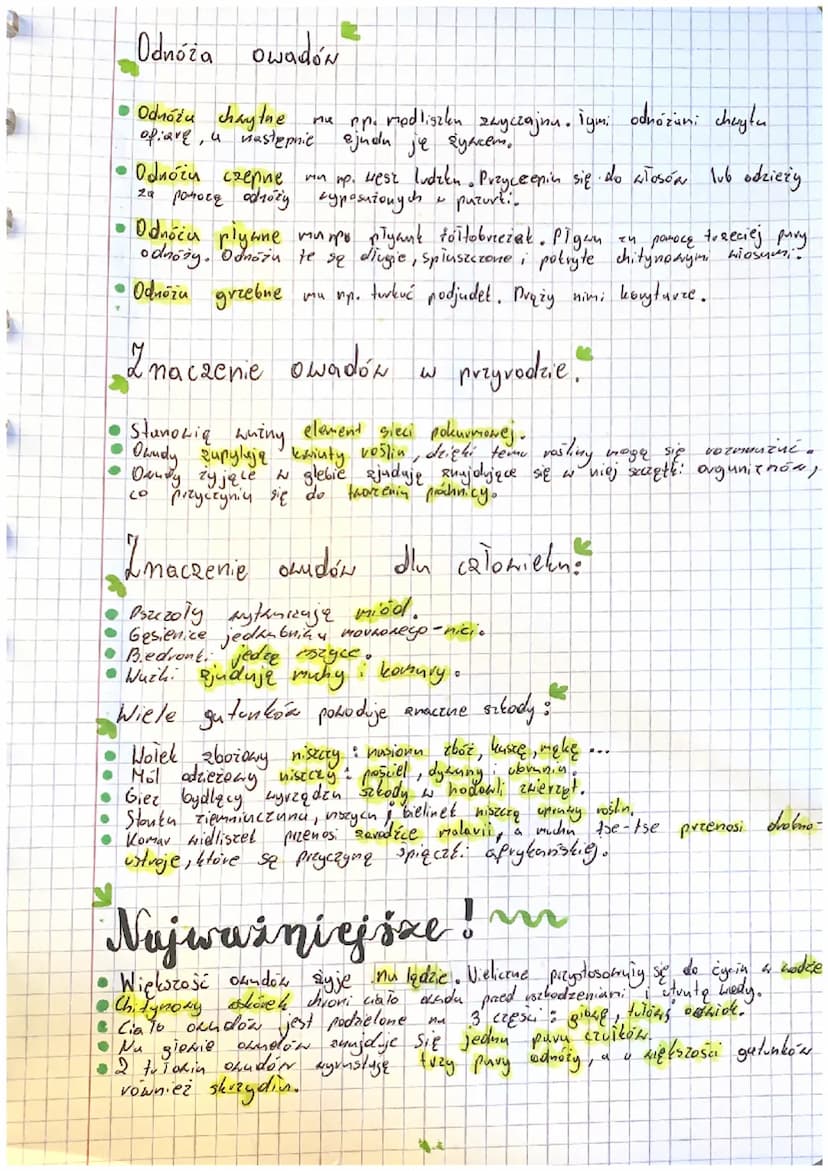 Odnóża owadów
Odnóża chwytne ma np. modliszka zwyczajna. Tymi odnóżami chwyta
ofiarę, a następnie zjada ją żywcem.
Odnóża czepne ma np. wesz ludzka. Przyczepia się do włosów lub odzieży
za pomocą odnóży wyposażonych w pazurki.
Odnóża pływne ma np. pływak żółtobrzeżek. Pływa za pomocą trzeciej pary
odnóży. Odnóża te są długie, spłaszczone i pokryte chitynowymi włosami.
Odnóża grzebne ma np. turkuć podjadek. Drąży nimi korytarze.
Znaczenie owadów w przyrodzie:
Stanowią ważny element sieci pokarmowej.
Owady zapylają kwiaty roślin, dzięki temu rośliny mogą się rozmnażać.
Owady żyjące w glebie zjadają znajdujące się w niej szczątki organizmów,
co przyczynia się do tworzenia próchnicy.
Znaczenie owadów dla człowieka:
Pszczoły wytwarzają miód.
Gąsienice jedwabnika morwowego - nici.
Biedronki jedzą mszyce.
Ważki zjadają muchy i komary.
Wiele gatunków powoduje znaczne szkody:
Wołek zbożowy niszczy: nasiona zbóż, kaszę, mąkę...
Mól odzieżowy niszczy: pościel, dywany i ubrania.
Giez bydlęcy wyrządza szkody w hodowli zwierząt.
Stonka ziemniaczana, mszyca i bielinek niszczą uprawy roślin.
Komar widliszek przenosi zarodźce malarii, a mucha tse-tse przenosi drobno-
ustroje, które są przyczyną śpiączki afrykańskiej.
Najważniejsze!
Większość owadów żyje na lądzie. Nieliczne przystosowały się do życia w wodzie
Chitynowy oskórek chroni ciało owada przed uszkodzeniami i utratą wody.
Ciało owadów jest podzielone na 3 części: głowę, tułów, odwłok.
Na głowie owadów znajduje się jedna para czułków.
Z tułowia owadów wyrastają trzy pary odnóży, a u większości gatunków
również skrzydła.